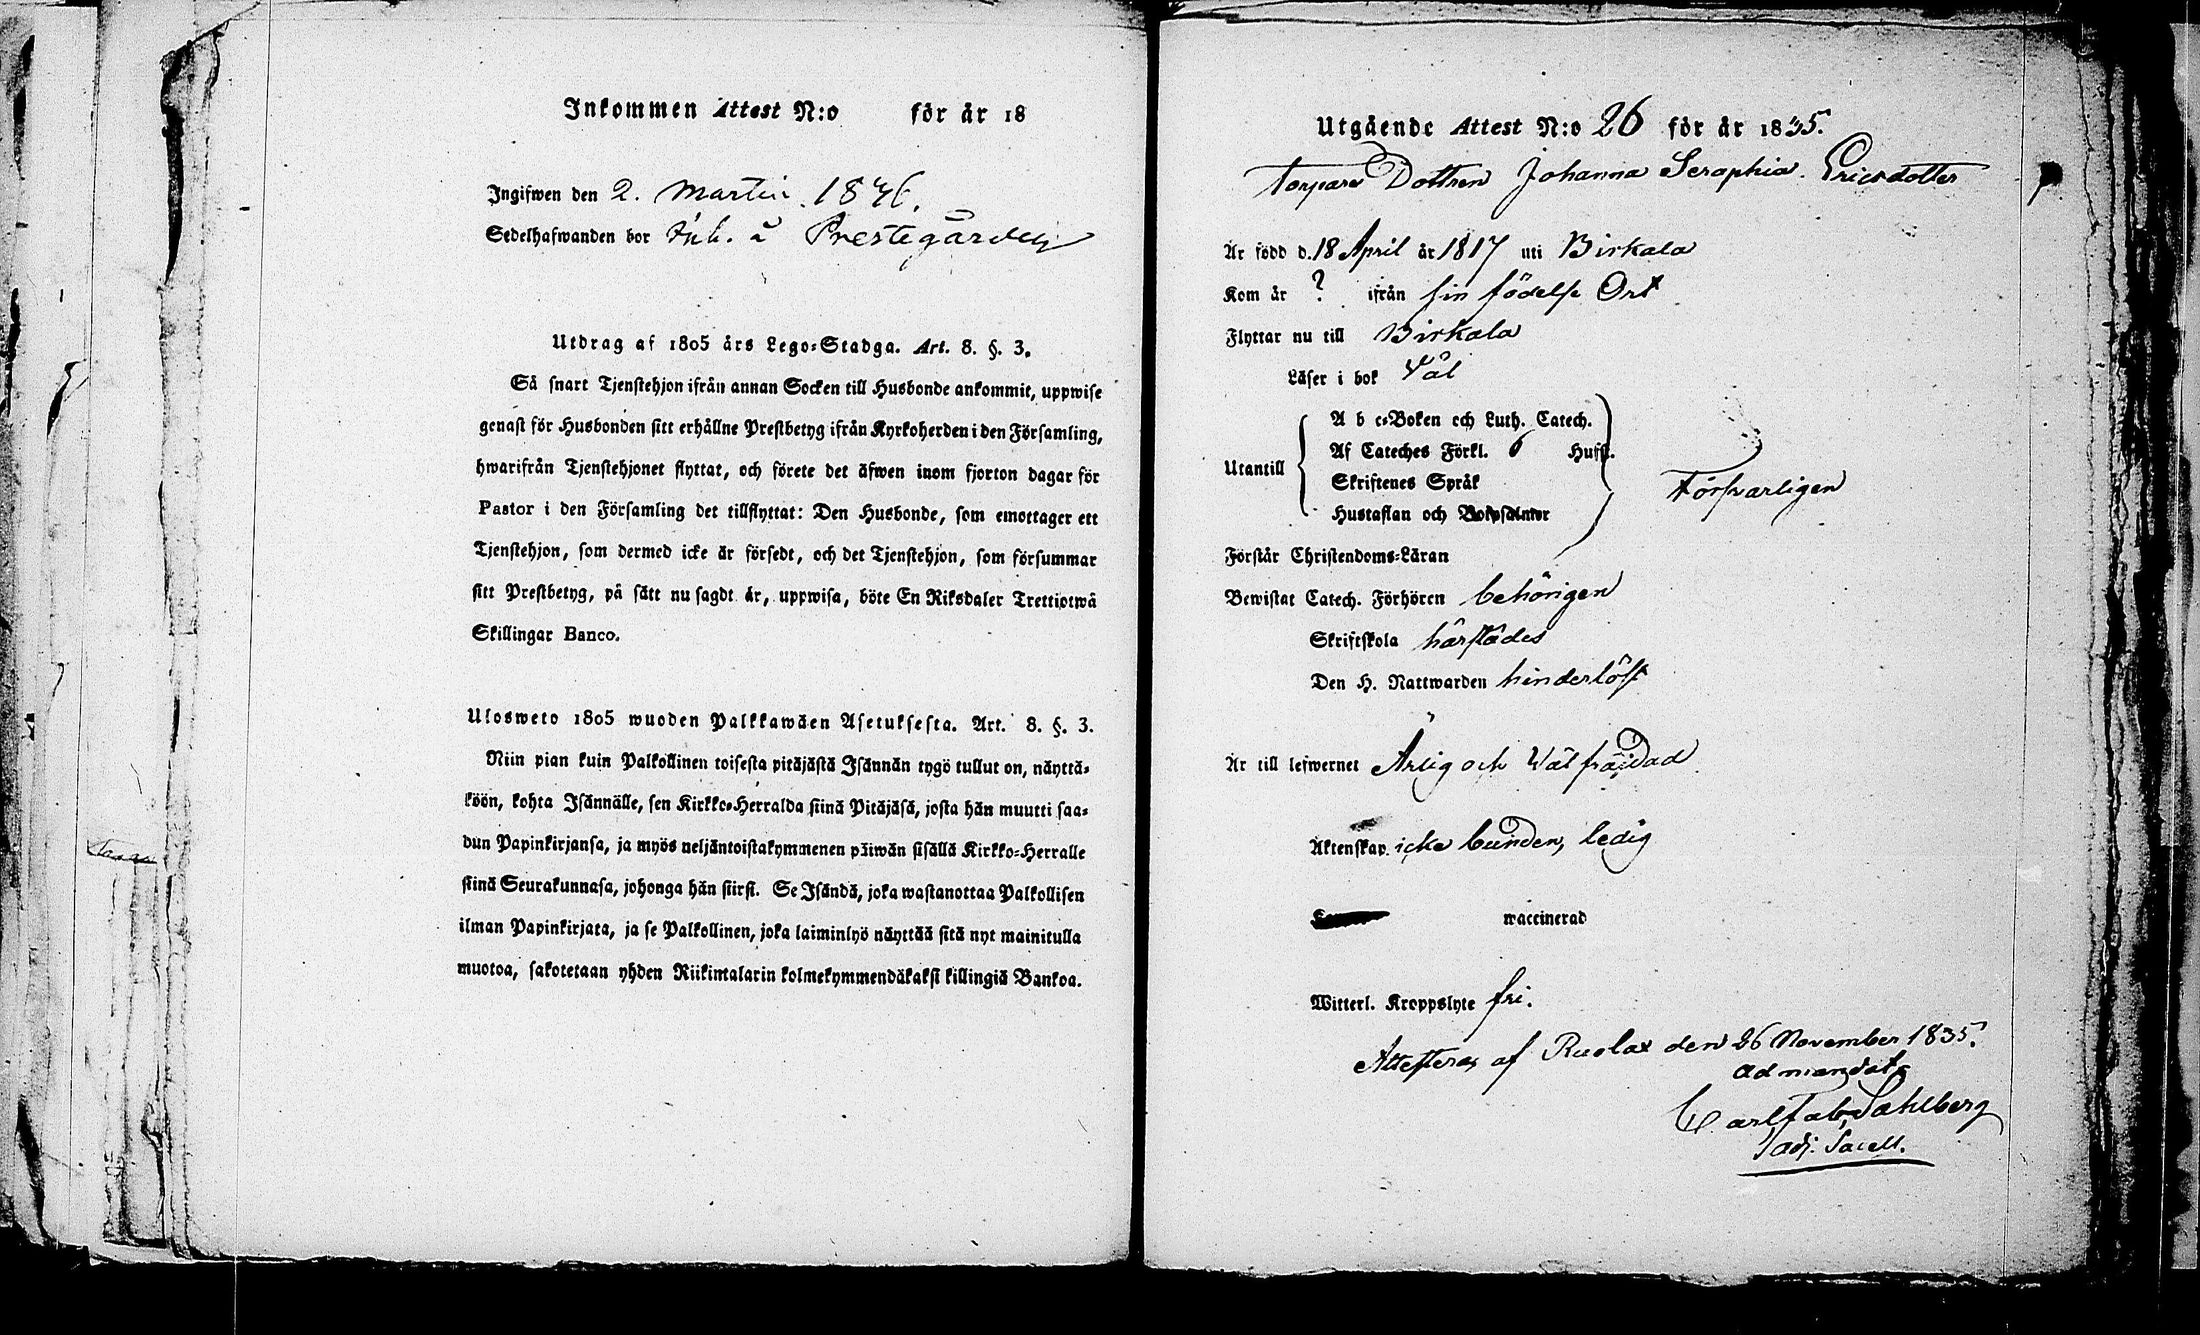 Inkommen Attest N:o för år 18
Ingifwen den 2. Martii 1836.
Sedelhafwanden bor Inh. å Prestegården
Utdrag af 1805 års Lego-Stadga. Art. 8. §. 3.
Så snart Tjenstehjon ifrån annan Socken till Husbonde ankommit, uppwise
genast för Husbonden sitt erhållne Prestbetyg ifrån Kyrkoherden i den Församling,
hwarifrån Tjenstehjonet flyttat, och förete det äfwen inom fjorton dagar för
Pastor i den Församling det tillflyttat: Den Husbonde, som emottager ett
Tjenstehjon, som dermed icke är försedt, och det Tjenstehjon, som försummar
sitt Prestbetyg, på sätt nu sagdt är, uppwisa, böte En Riksdaler Trettiotwå
Skillingar Banco.
Ulosweto 1805 wuoden Palkkawäen Asetuksesta. Art. 8. §. 3.
Niin pian kuin Palkollinen toisesta pitäjästä Isännän tygö tullut on, näyttä-
köön, kohta Isännälle, sen Kirkko-Herralda siinä Pitäjäsä, josta hän muutti saa-
dun Papinkirjansa, ja myös neljäntoistakymmenen päiwän sisällä Kirkko-Herralle
siinä Seurakunnasa, johonga hän siirsi. Se Isändä, joka wastanottaa Palkollisen
ilman Papinkirjata, ja se Palkollinen, joka laiminlyö näyttää sitä nyt mainitulla
muotoa, sakotetaan yhden Riikintalarin kolmekymmendäkaksi killingiä Bankoa.
Utgående Attest N:o 26 för år 1835.
Torpare Dottren Johanna Seraphia Ericsdotter
Är född d. 18 April år 1817 uti Birkala
Kom år ? ifrån sin födelse Ort
Flyttar nu till Birkala
Läser i bok Väl
A b c-Boken och Luth. Catech.
Utantill Af Cateches Förkl. 6 Hufst. Försvarligen
Skriftenes Språk
Hustaflan och Botpsalmer
Förstår Christendoms-Läran
Bewistat Catech. Förhören behörigen
Skriftskola härstädes
Den H. Nattwarden hinderlöst
Är till lefwernet Ärlig och Väl fräjdad
Äktenskap. icke bunden, ledig
waccinerad
Witterl. Kroppslyte fri.
Attesteras af Ruolax den 26 November 1835.
ad mandat
Carl Fab. Sahlberg
adj. Sacell.